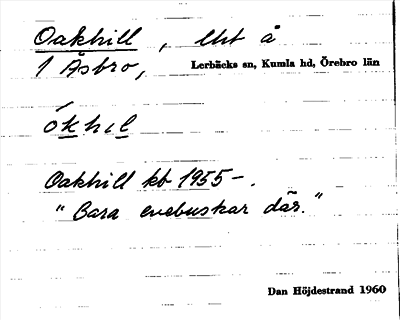 Oakhill, lht å
1 Åsbro, Lerbäcks sn, Kumla hd, Örebro län
ókhil
Oakhill kb 1955-.
"Bara enebuskar där."
Dan Höjdestrand 1960